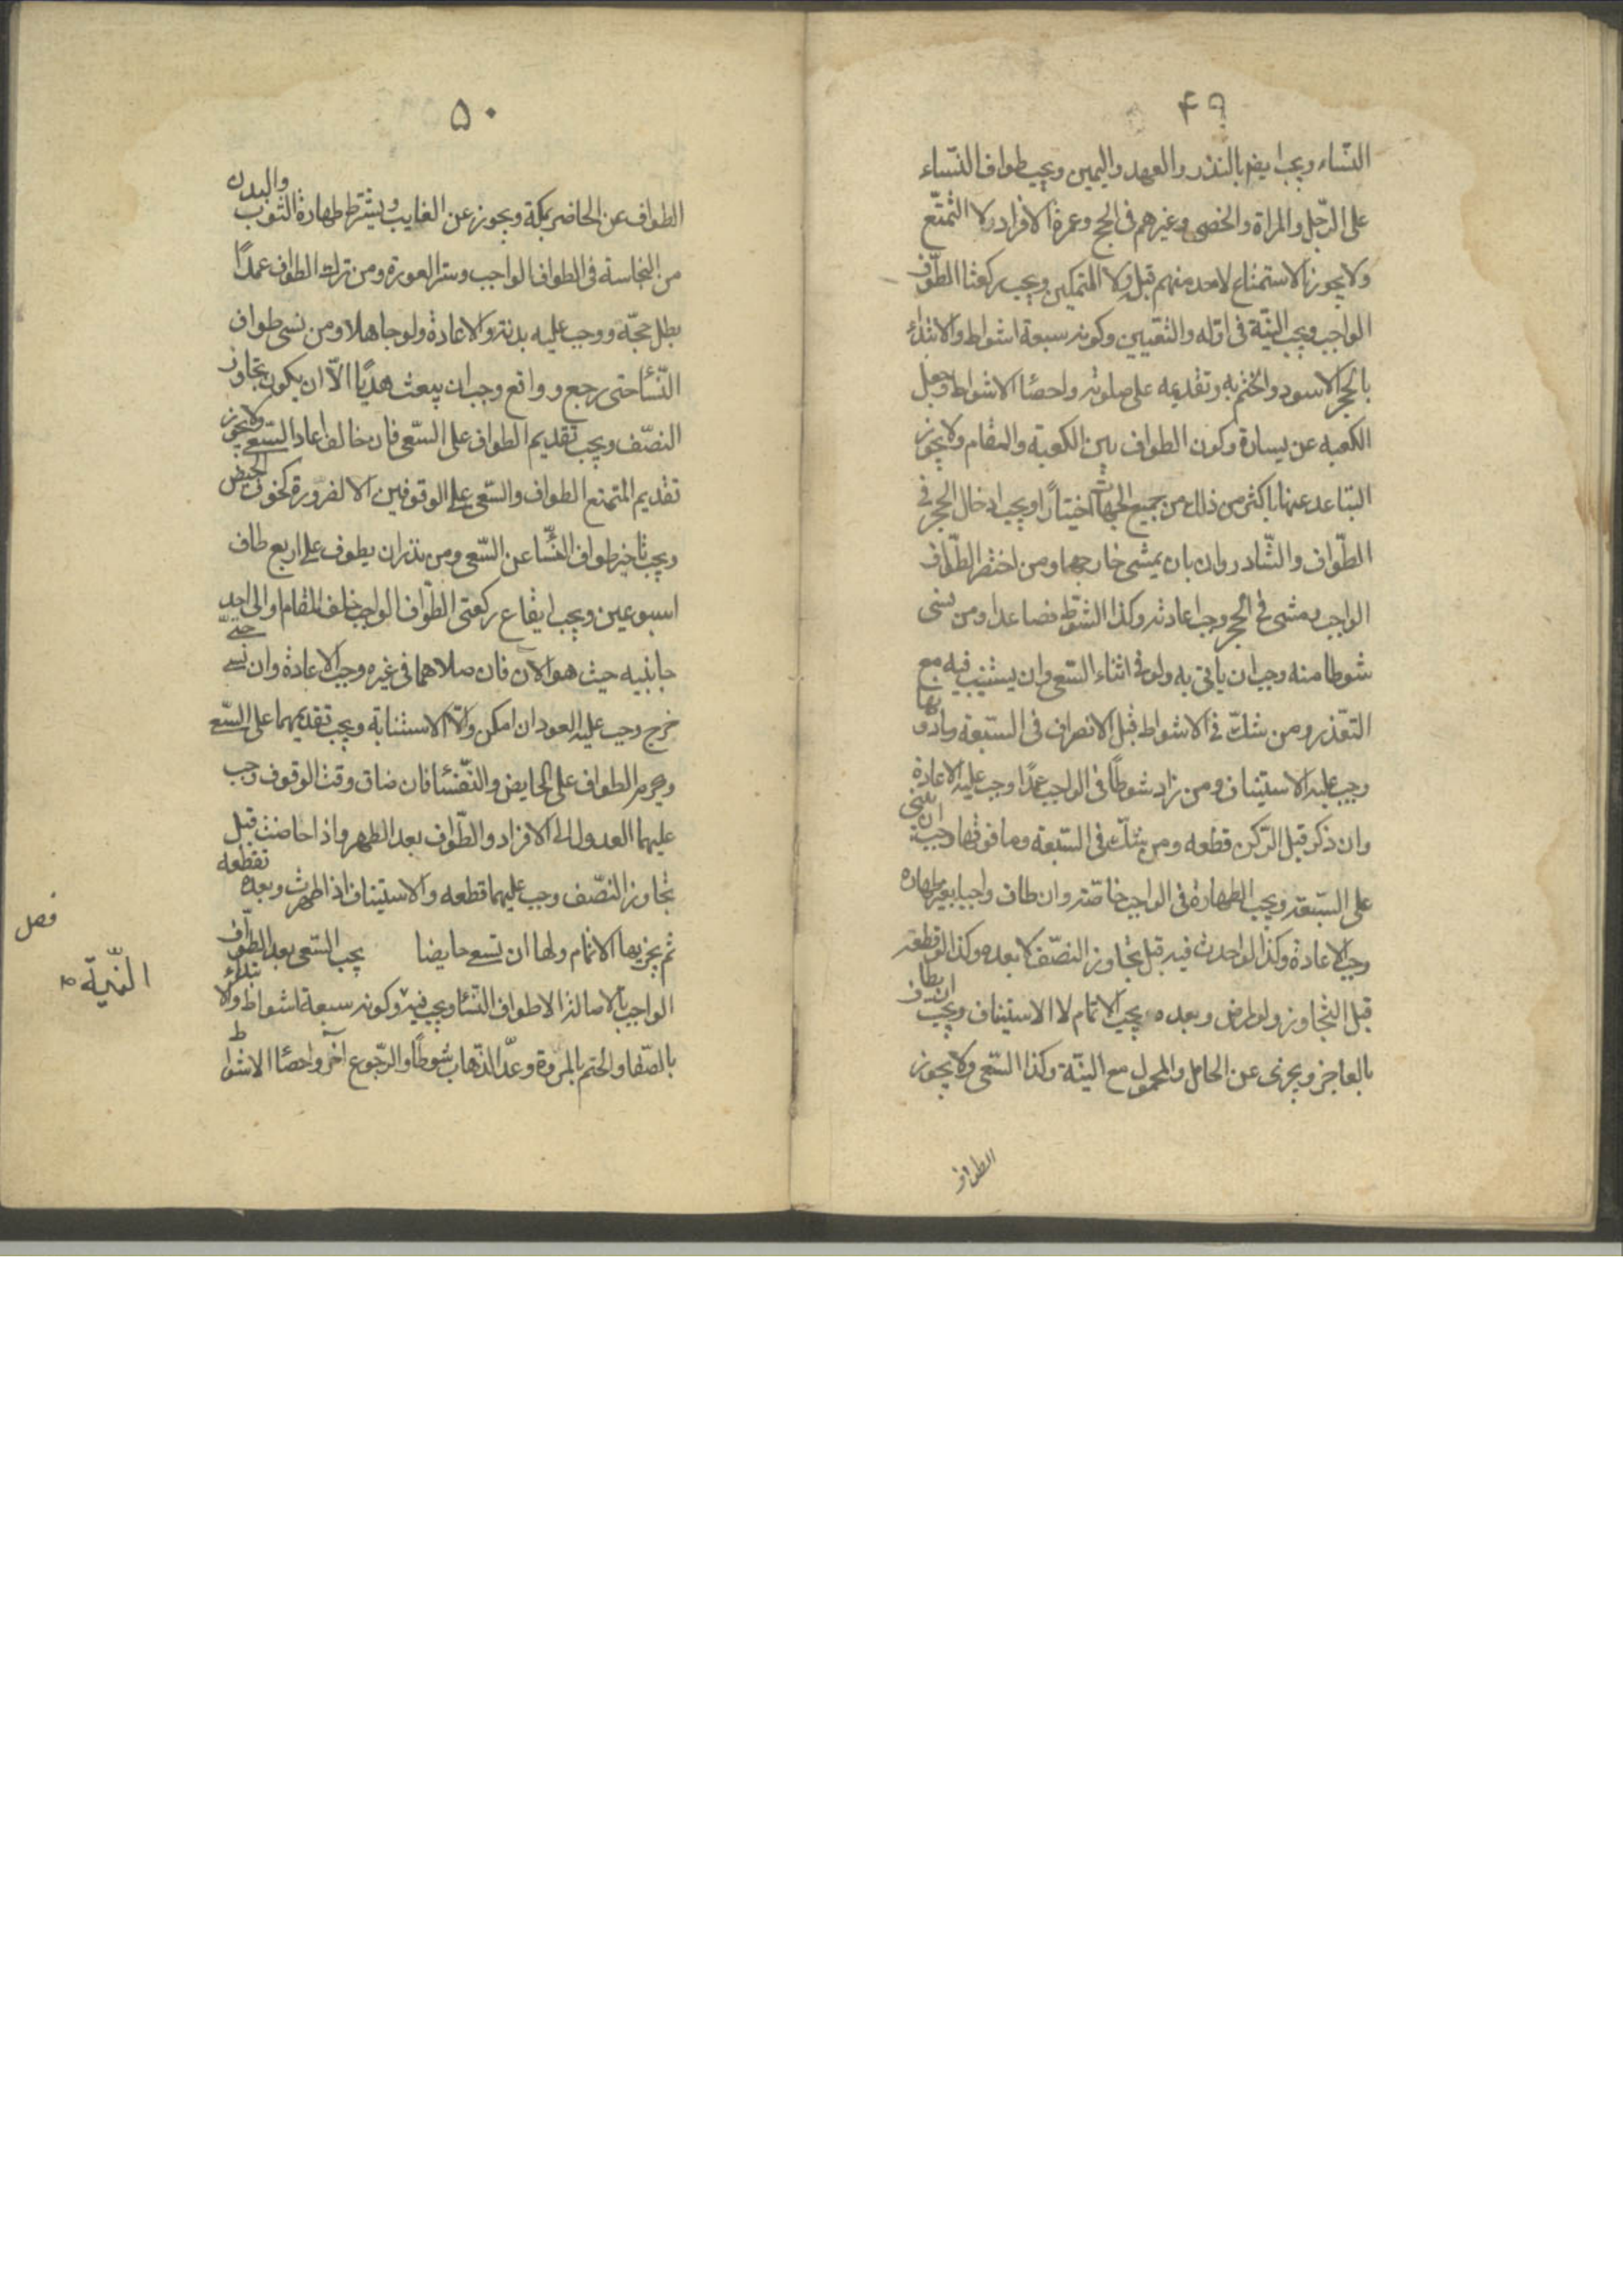 ۴۹
النّساء ويجب ايضا بالنذر والعهد واليمين ويجب طواف النّساء
على الرّجل والمراة والخصى وغيرهم فى الحج وعمرة الافراد لا التمتّع
ولا يجوز الاستمتاع لاحد منهم قبله ولا التمكين ويجب ركعتا الطّواف
الواجب ويجب النيّة فى اوّله والتعيين وكونه سبعة اشواط والابتداء
بالحجر الاسود والختم به وتقديمه على صلوته واحصاء الاشواط وجعل
الكعبه عن يساره وكون الطواف بين الكعبة والمقام ولا يجوز
التباعد عنها باكثر من ذلك من جميع الجهات اختيارًا ويجب ادخال الحجر فى
الطّواف والشّادروان بان يمشى خارجهما ومن اختصر الطّواف
الواجب بمشى فى الحجر وجب اعادته وكذا الشوط فصاعدا ومن نسى
شوطا منه وجب ان ياتى به ولو فى اثناء السّعى وان يستنيب فيه مع
التعّذر ومن شكّ فى الاشواط قبل الانصراف فى السّبعة ومادونها
وجب عليه الاستيناف ومن زاد شوطًا فى الواجب عمدًا وجب عليه الاعادة
وان ذكر قبل الرّكن قطعه ومن شكّ فى السّبعة وما فوقها وجب ان يبنى
على السّبعة ويجب الطهارة فى الواجب خاصّة وان طاف واجبا بغير طهاره
وجب الاعادة وكذا لو احدث فيه قبل تجاوز النصّف لا بعده وكذا لو قطعه
قبل التجاوز ولو لمرض وبعده يجب الاتمام لا الاستيناف ويجب ان يطاف
بالعاجز ويجزى عن الحامل والمحمول مع النيّة وكذا السّعى ولا يجوز
الطواف
۵۰
الطواف عن الحاضر بمكة ويجوز عن الغايب ويشترط طهارة الثوب والبدن
من النجاسة فى الطواف الواجب وستر العورة ومن ترك الطواف عمدًا
بطل حجّه ووجب عليه بدنة والاعادة ولو جاهلا ومن نسى طواف
النّساء حتى رجع وواقع وجب ان يبعث هديًا الّا ان يكون تجاوز
النصّف ويجب تقديم الطواف على السّعى فان خالف اعاد السّعى ولا يجوز
تقديم المتمتع الطواف والسّعى على الوقوفين الا لضرورة كخوف الحيض
ويجب تاخير طواف النّساء عن السّعى ومن نذر ان يطوف على اربع طاف
اسبوعين ويجب ايقاع ركعتى الطّواف الواجب خلف المقام او الى احد
جانبيه حيث هو الان فان صلاهما فى غيره وجب الاعادة وان نسى حتّى
خرج وجب عليه العود ان امكن والّا الاستنابة ويجب تقديمهما على السّعى
ويحرم الطواف على الحايض والنّفساء فان ضاق وقت الوقوف وجب
عليهما العدول الى الافراد والطّواف بعد الطهر واذا حاضت قبل
تجاوز النصّف وجب عليهما قطعه والاستيناف اذا طهرت وبعده تقطعه
ثم يجزيها الاتمام ولها ان تسعى حايضا يجب السّعى بعد الطّواف
الواجب بالاصالة الا طواف النّساء ويجب فيه وكونه سبعة اشواط والابتداء
بالصّفا والختم بالمروة وعدّ الذّهاب شوطًا والرّجوع آخر واحصاء الاشواط
فصل
النّية